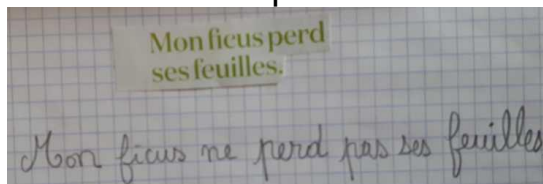 Mon ficus perd
ses feuilles.
Mon ficus ne perd pas ses feuilles